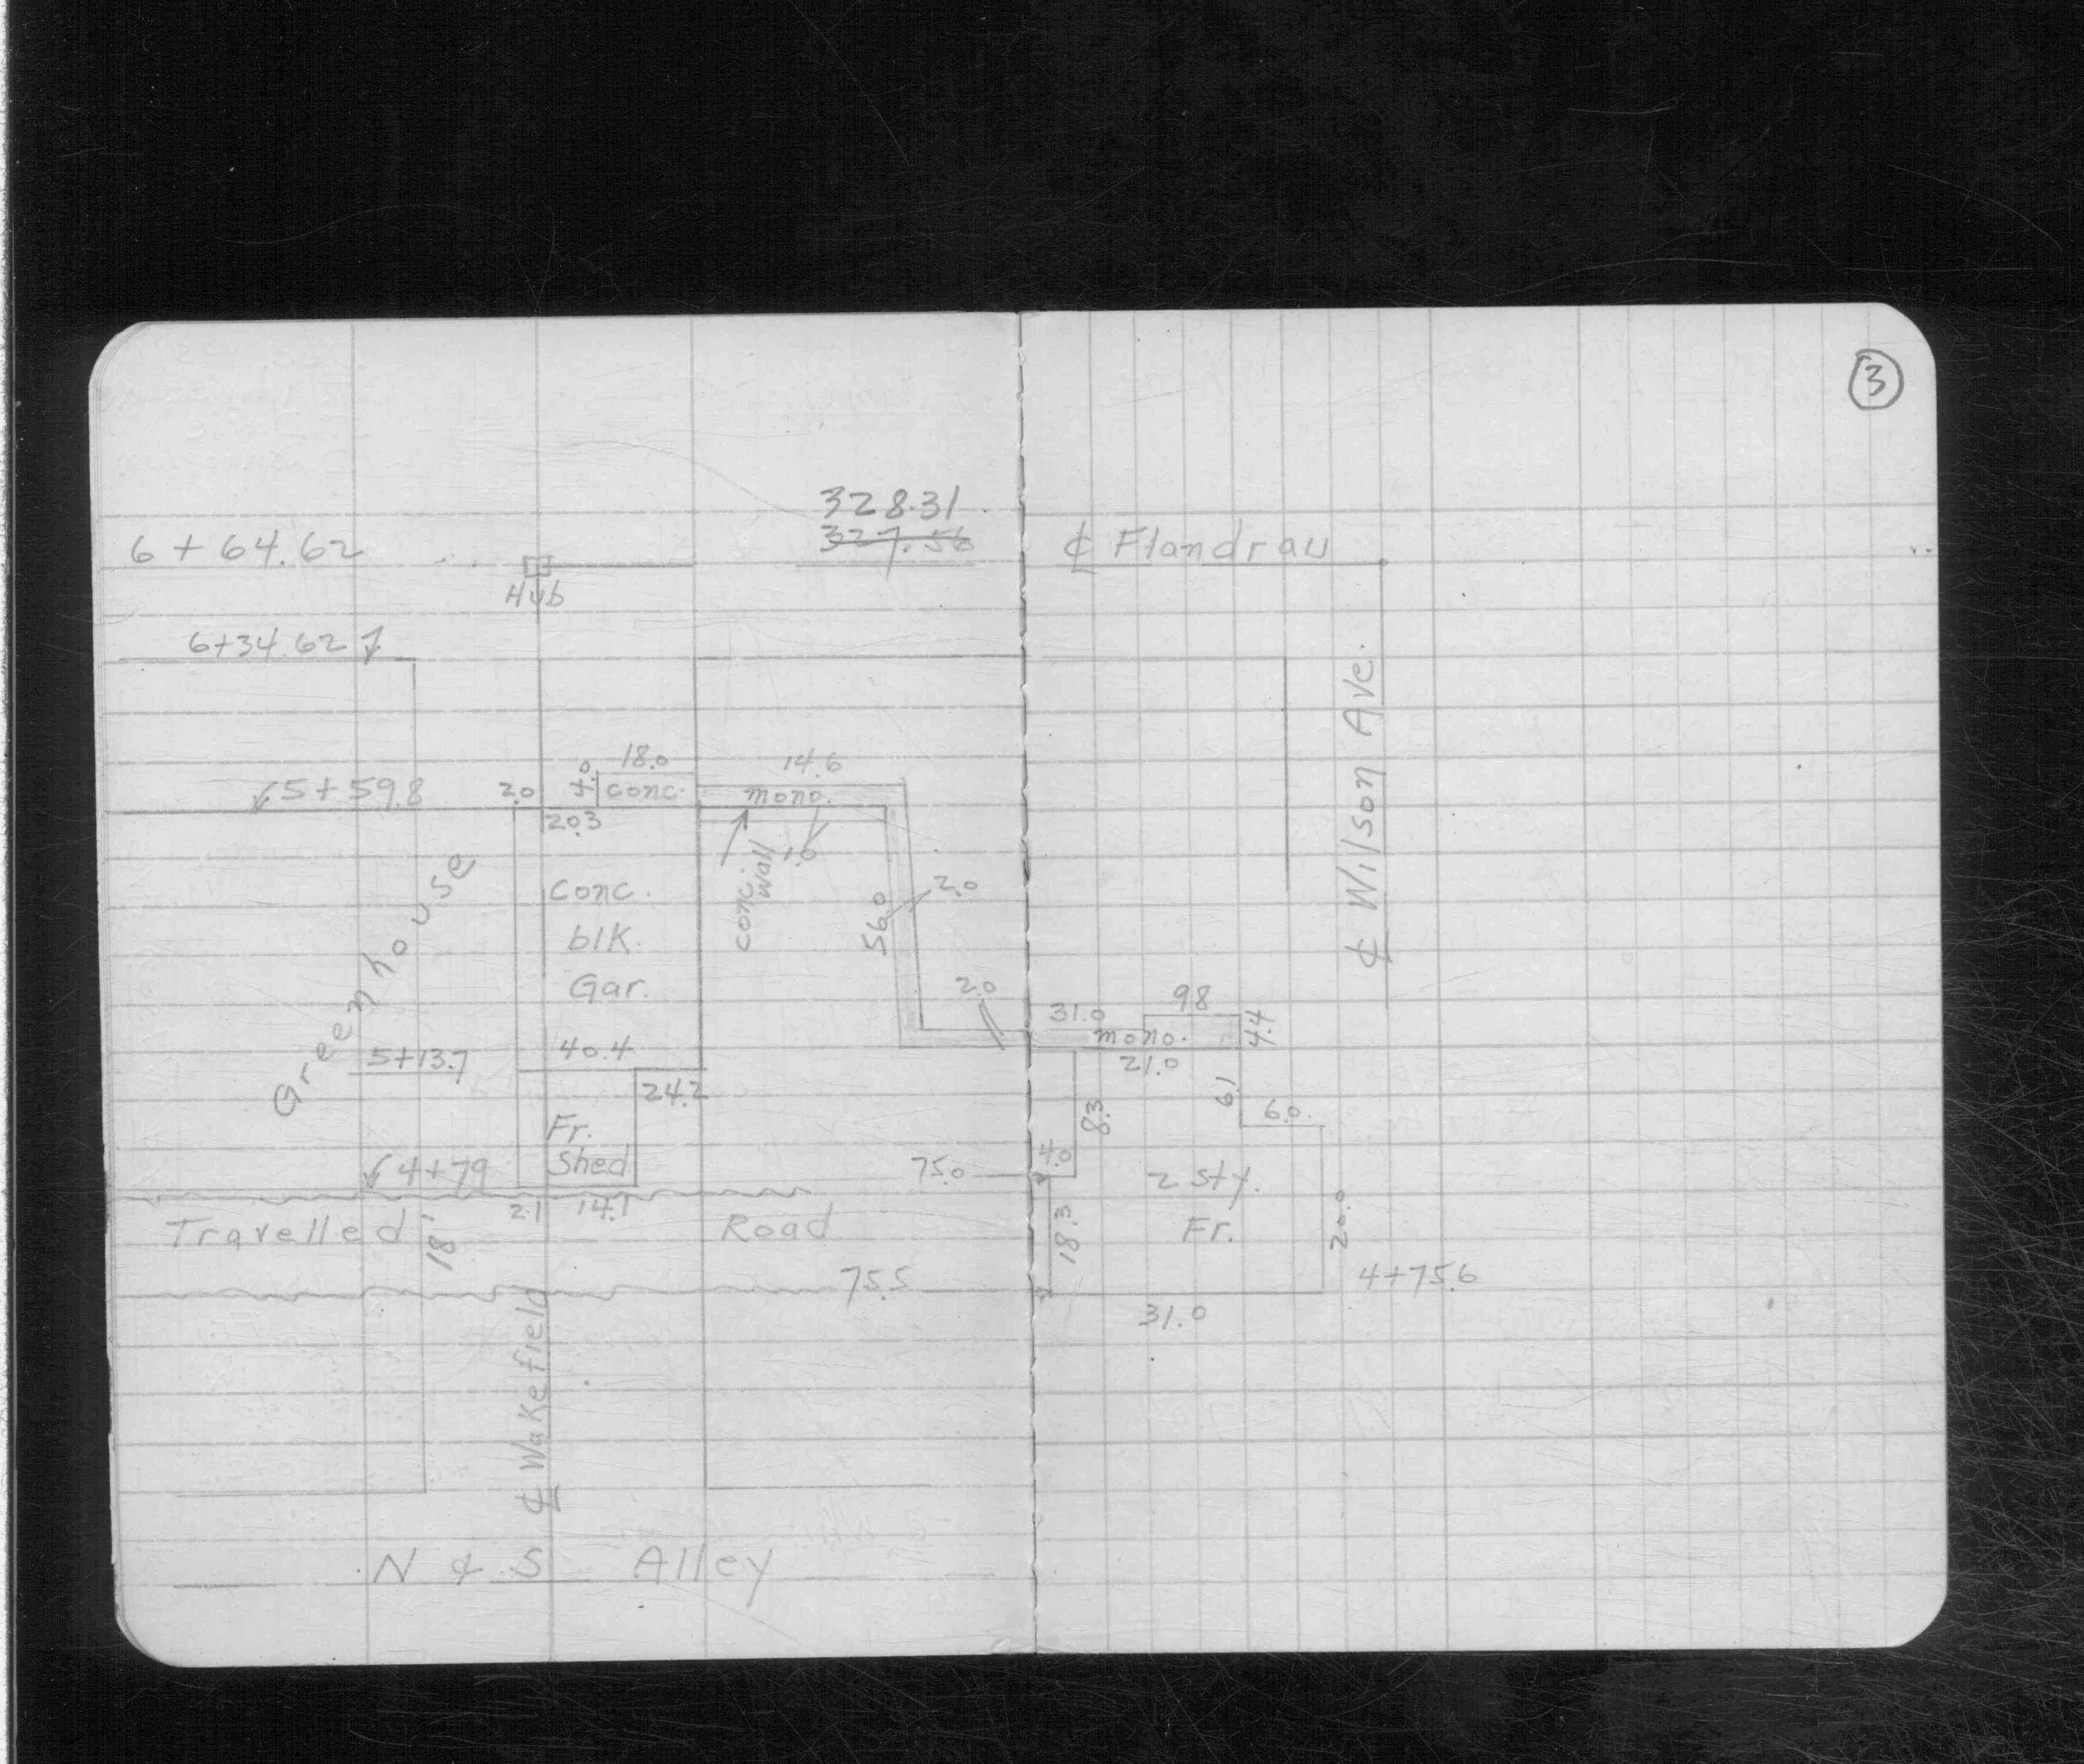 3
328.31
327.56
6 + 64.62
Hub
℄ Flandrau
6+34.62
℄ Wilson Ave.
5+59.8
2.0
4.0
18.0
conc.
14.6
mono.
20.3
1.0
conc. wall
Greenhouse
conc.
blk.
Gar.
56.0
2.0
2.0
31.0
9.8
4.4
mono.
21.0
5+13.7
40.4
24.2
8.3
6.1
6.0
Fr.
Shed
4+79
75.0
4.0
2 sty.
Fr.
2.1
14.1
Travelled
18'
Road
18.3
20.0
75.5
4+75.6
31.0
℄ Wakefield
N & S Alley